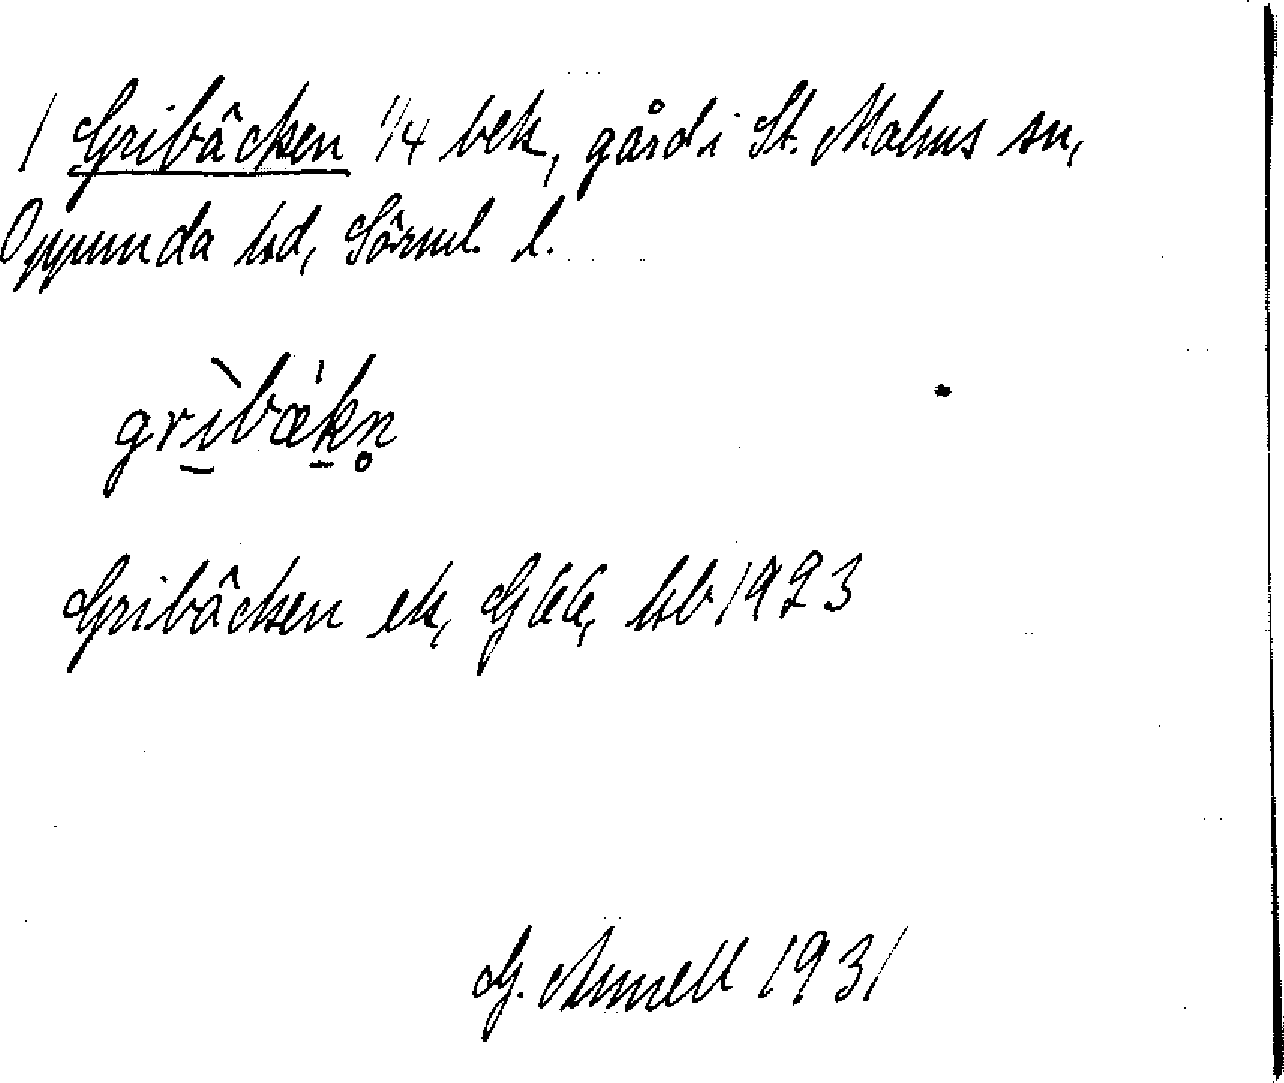 1 Gribäcken 1/4 bek, gård i St. Malms sn,
Oppunda hd, Sörml. l.
gri̱bæḵn̥
Gribäcken ek, GEK, hb 1923
G. Annell 1931